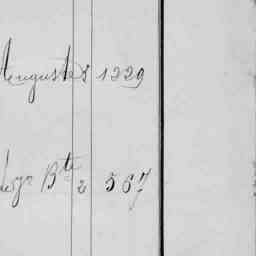 Auguste 8 1229
Bte 2 567